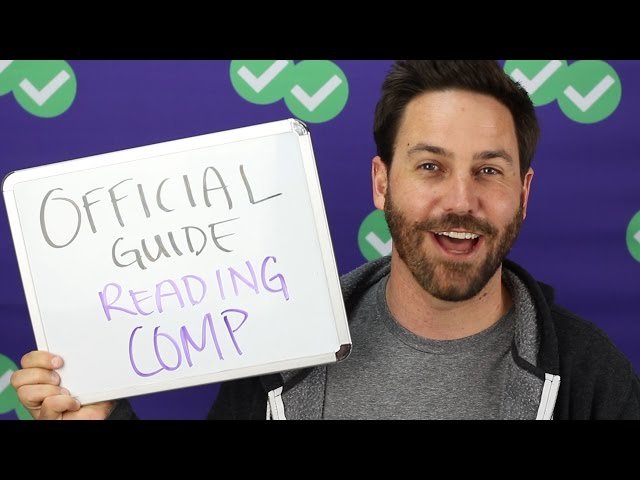 OFFICIAL
GUIDE
READING
COMP